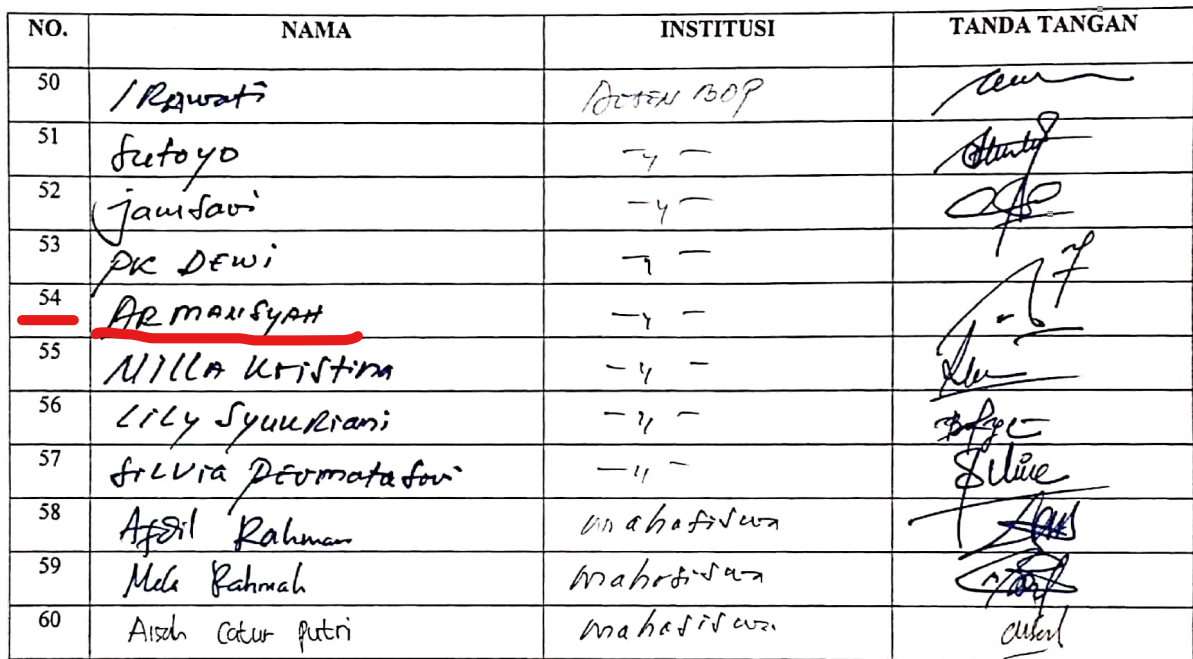 NO. NAMA INSTITUSI TANDA TANGAN
50 IRawati Dosen BDP
51 Sutoyo -〃-
52 jamsari -〃-
53 PK DEWi -〃-
54 ARMANSYAH -〃-
55 MILLA KristinA -〃-
56 LiLy SyuKRiani -〃-
57 SiLVia Permata Sari -〃-
58 Rahman mahasiswa
59 Rahmah mahasiswa
60 Catur putri mahasiswa